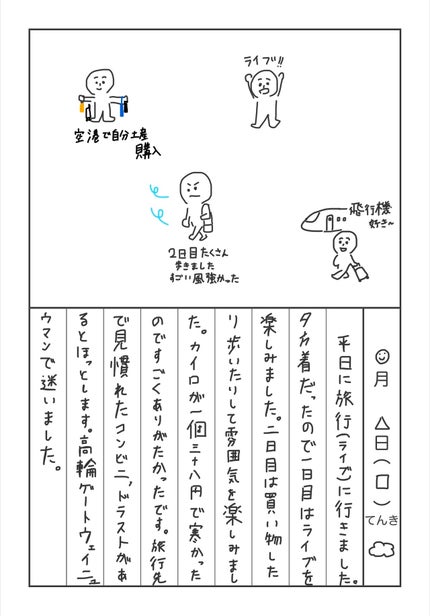 ライブ!!
空港で自分土産
購入
飛行機
好き〜
2日目たくさん
歩きました
すごい風強かった
月 日( )
てんき
平日に旅行(ライブ)に行きました。
夕方着だったので一日目はライブを
楽しみました。二日目は買い物した
り歩いたりして雰囲気を楽しみまし
た。カイロが一個三十八円で寒かった
のですごくありがたかったです。旅行先
で見慣れたコンビニ、ドラストがあ
るとほっとします。高輪ゲートウェイニュ
ウマンで迷いました。